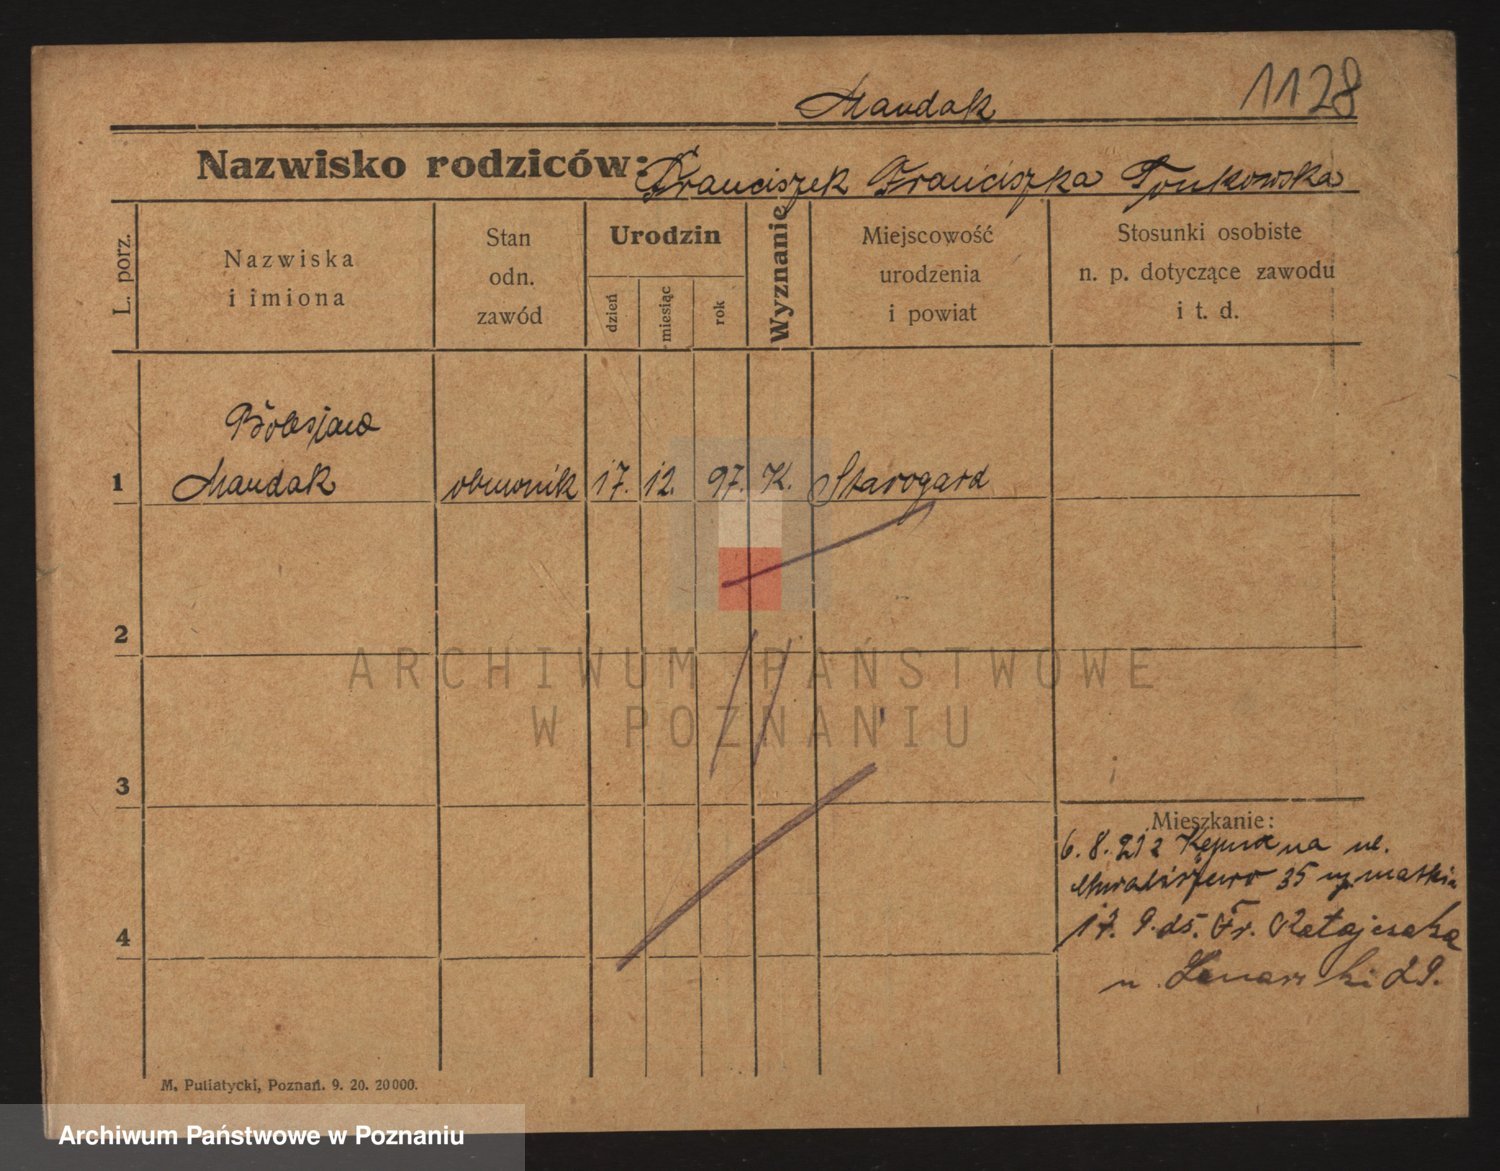 1128
Mandak
Nazwisko rodziców: Franciszek Franciszka Tonkowska
L. porz.
Nazwiska
i imiona
Stan
odn.
zawód
Urodzin
dzień
miesiąc
rok
Wyznanie
Miejscowość
urodzenia
i powiat
Stosunki osobiste
n. p. dotyczące zawodu
i t. d.
Bolesław
1 Mandak 17. 12. 97. K. Starogard
2
3
Mieszkanie:
6. 8. 21 z na ul.
35
17. 9. 25. Fr. Ratajczaka
4
29.
M. Puliatycki, Poznań. 9. 20. 20000.
ARCHIWUM PAŃSTWOWE
W POZNANIU
Archiwum Państwowe w Poznaniu